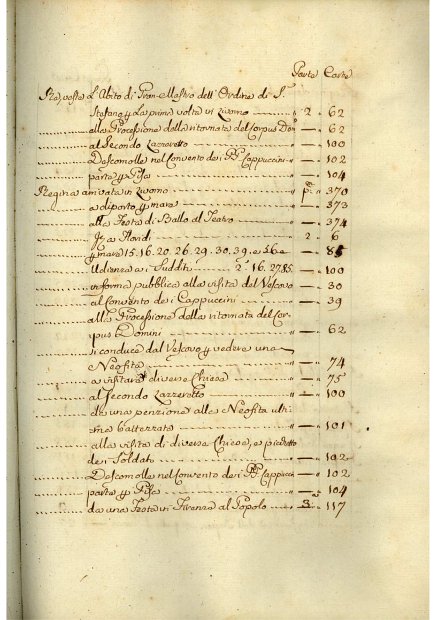 Parte Carte
Rè, veste L'Abito di Gran-Mastro dell'Ordine di S.
Stefano p. La prima volta in Livorno " 2 " 62
alla Processione della ritornata del Corpus Dom " — " 62
al Secondo Lazzeretto " — " 100
Descomolle nel Convento de i PP. Cappuccini " — " 102
parte p. Pisa " — " 104
Regina arrivata in Livorno " p. " 370
a diporto p. mare " — " 373
alla Festa di Ballo al Teatro " — " 374
2 " 6
p. mare 15. 16. 20. 26. 29. 30. 39. e 56 e " — " 85
Udienza a i Sudditi 2. 16. 27. 85. " — " 100
informa pubblica alla visita del Vescovo " — " 30
al Convento de i Cappuccini " — " 39
alla Processione della ritornata del Cor-
pus Domini " — " 62
si conduce dal Vescovo p. vedere una
Neofita " — " 74
a visitare diverse Chiese " — " 75
al Secondo Lazzeretto " — " 100
da una penzione alla Neofita ulti-
ma battezzata " — " 101
alla visita di diverse Chiese, e
dei Soldati " — " 102
Descomolle nel Convento de i PP. Cappucci " — " 102
parte p. Pisa " — " 104
da una Festa in Firenze al Popolo " 3 " 117